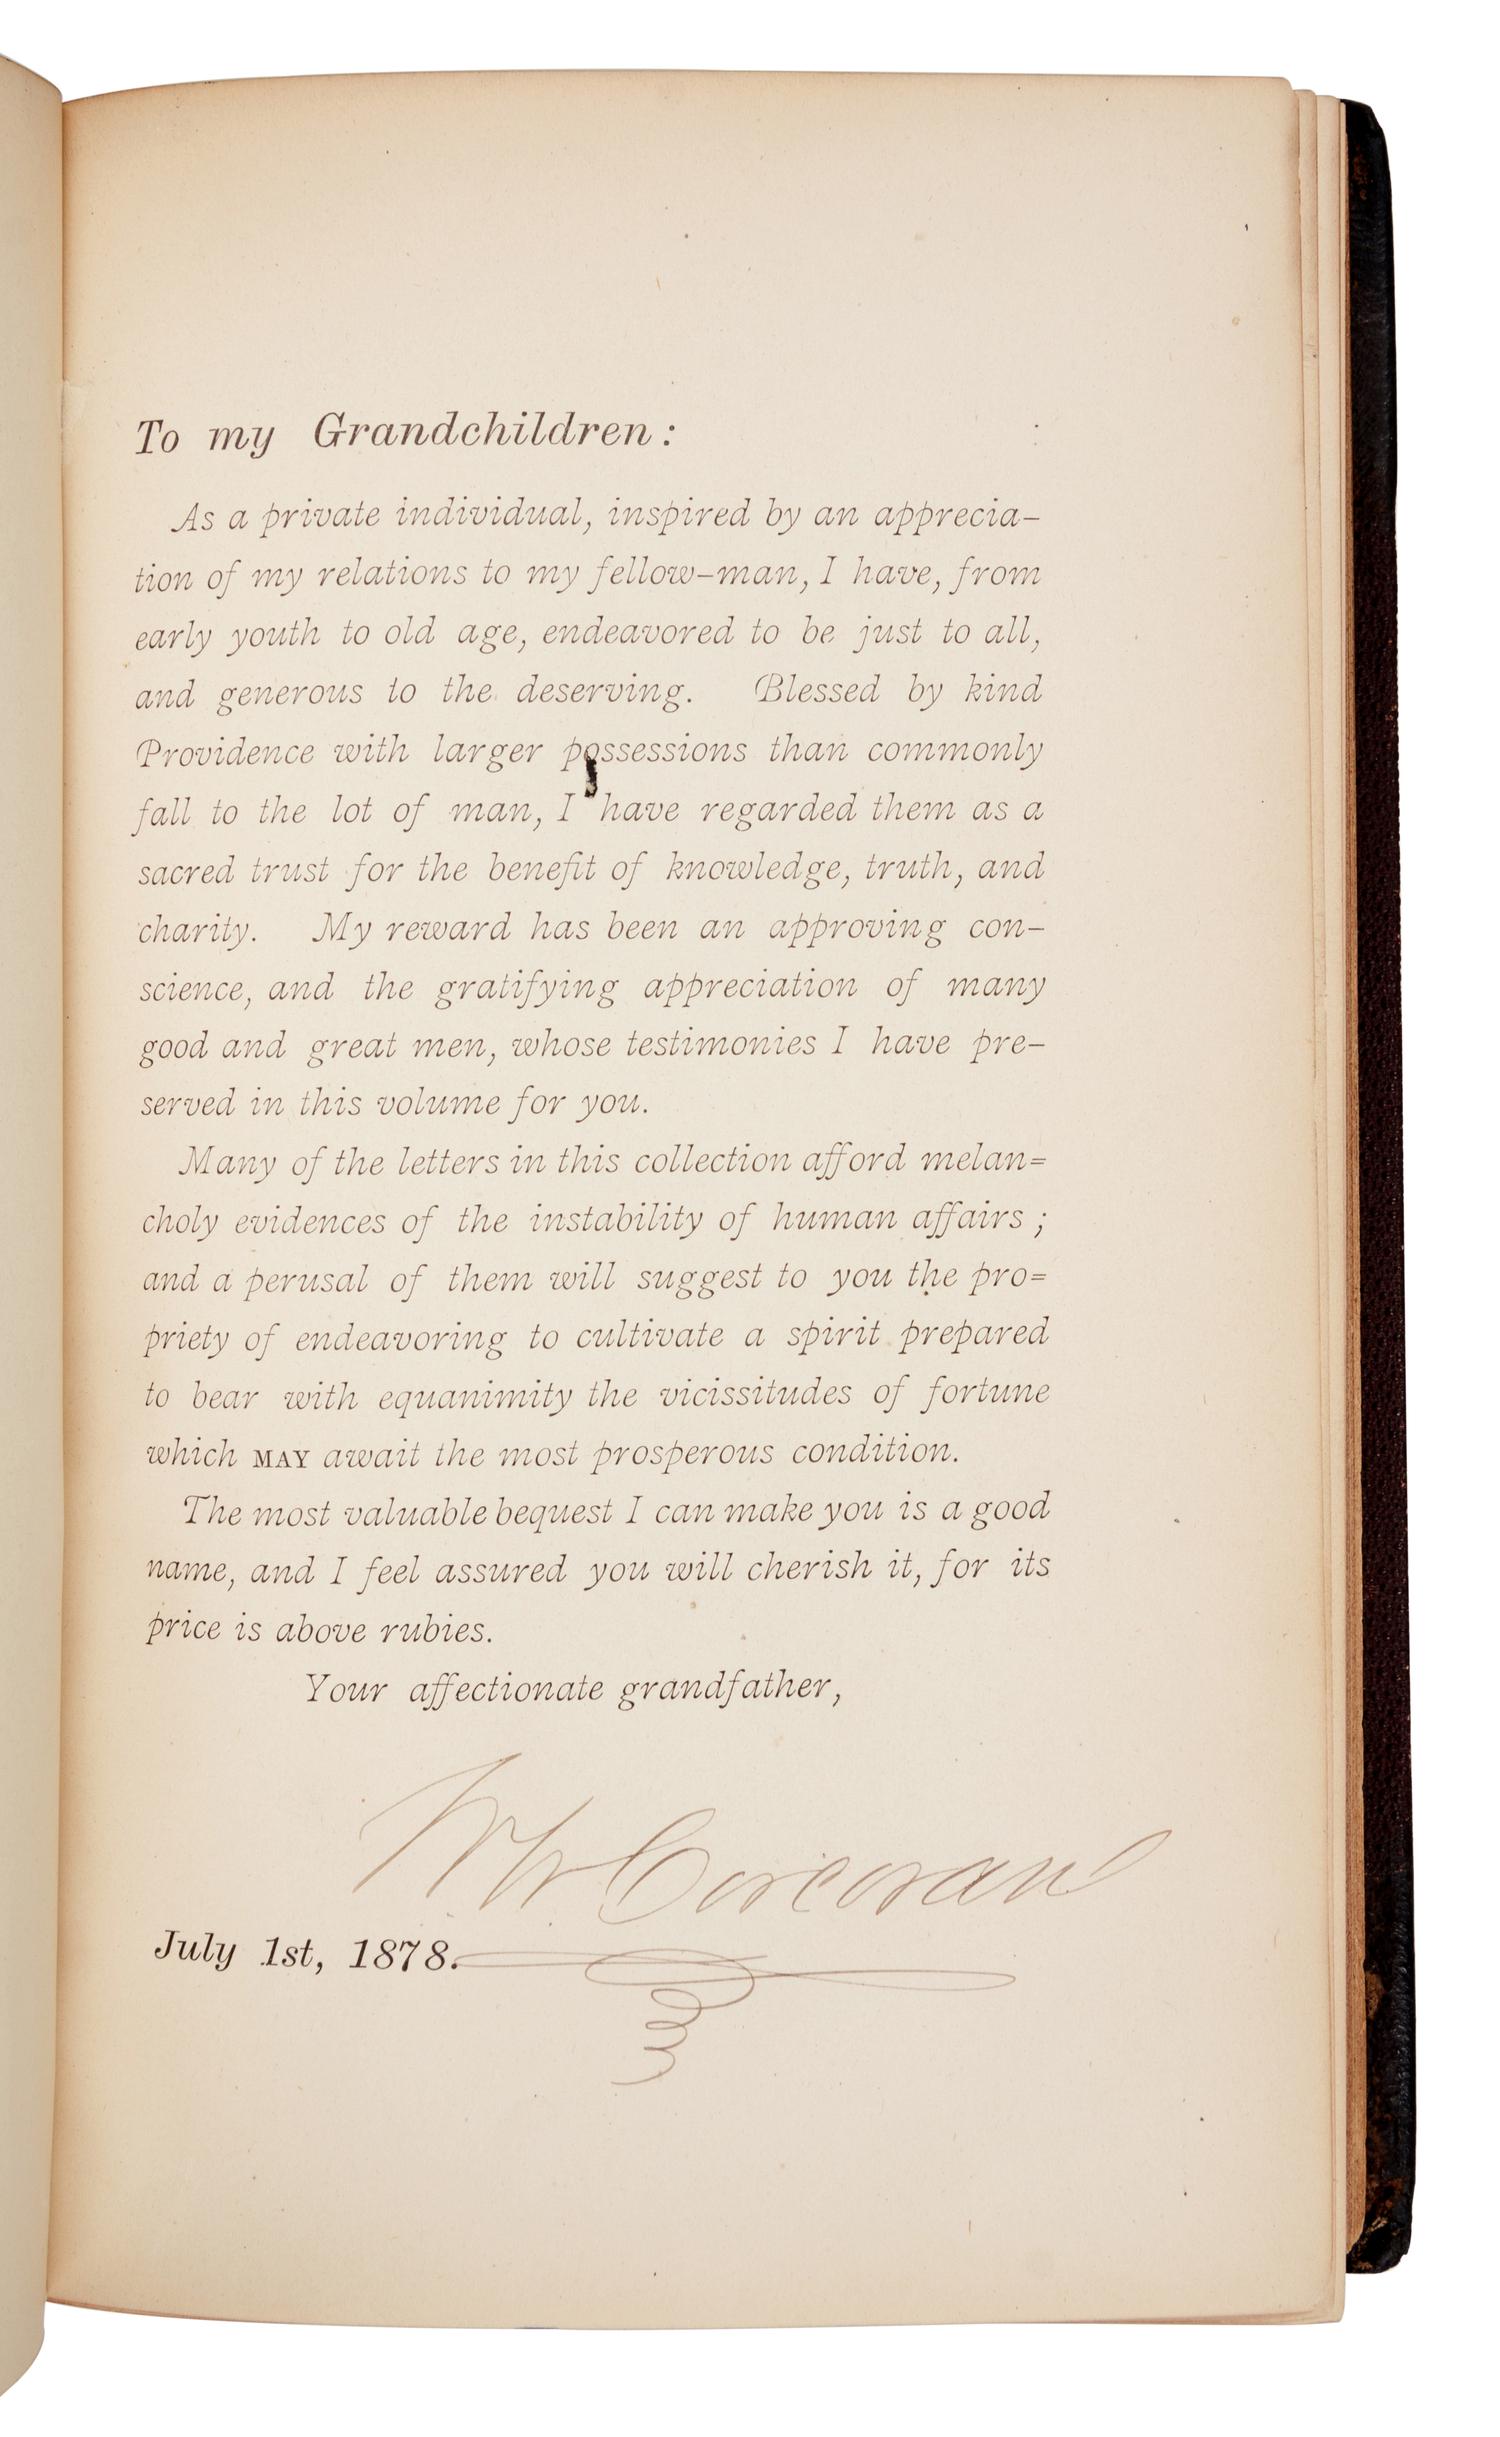 To my Grandchildren:
As a private individual, inspired by an apprecia-
tion of my relations to my fellow-man, I have, from
early youth to old age, endeavored to be just to all,
and generous to the deserving. Blessed by kind
Providence with larger possessions than commonly
fall to the lot of man, I have regarded them as a
sacred trust for the benefit of knowledge, truth, and
charity. My reward has been an approving con-
science, and the gratifying appreciation of many
good and great men, whose testimonies I have pre-
served in this volume for you.
Many of the letters in this collection afford melan=
choly evidences of the instability of human affairs ;
and a perusal of them will suggest to you the pro=
priety of endeavoring to cultivate a spirit prepared
to bear with equanimity the vicissitudes of fortune
which MAY await the most prosperous condition.
The most valuable bequest I can make you is a good
name, and I feel assured you will cherish it, for its
price is above rubies.
Your affectionate grandfather,
WW Corcoran
July 1st, 1878.